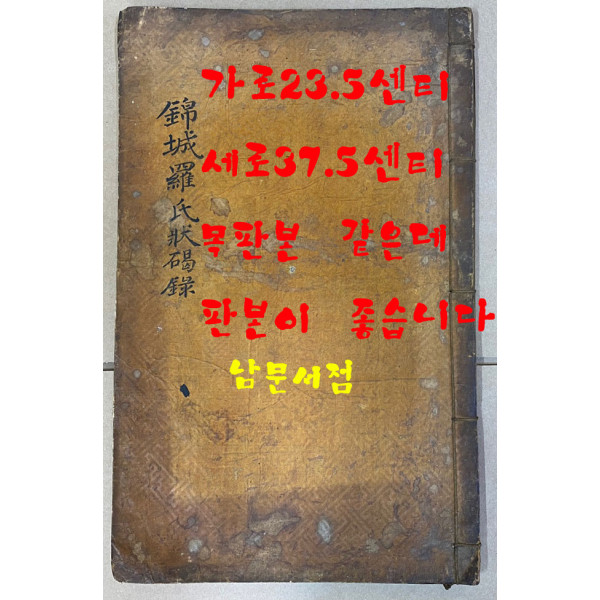 錦城羅氏狀碣錄
가로23.5센티
세로37.5센티
목판본 같은데
판본이 좋습니다
남문서점